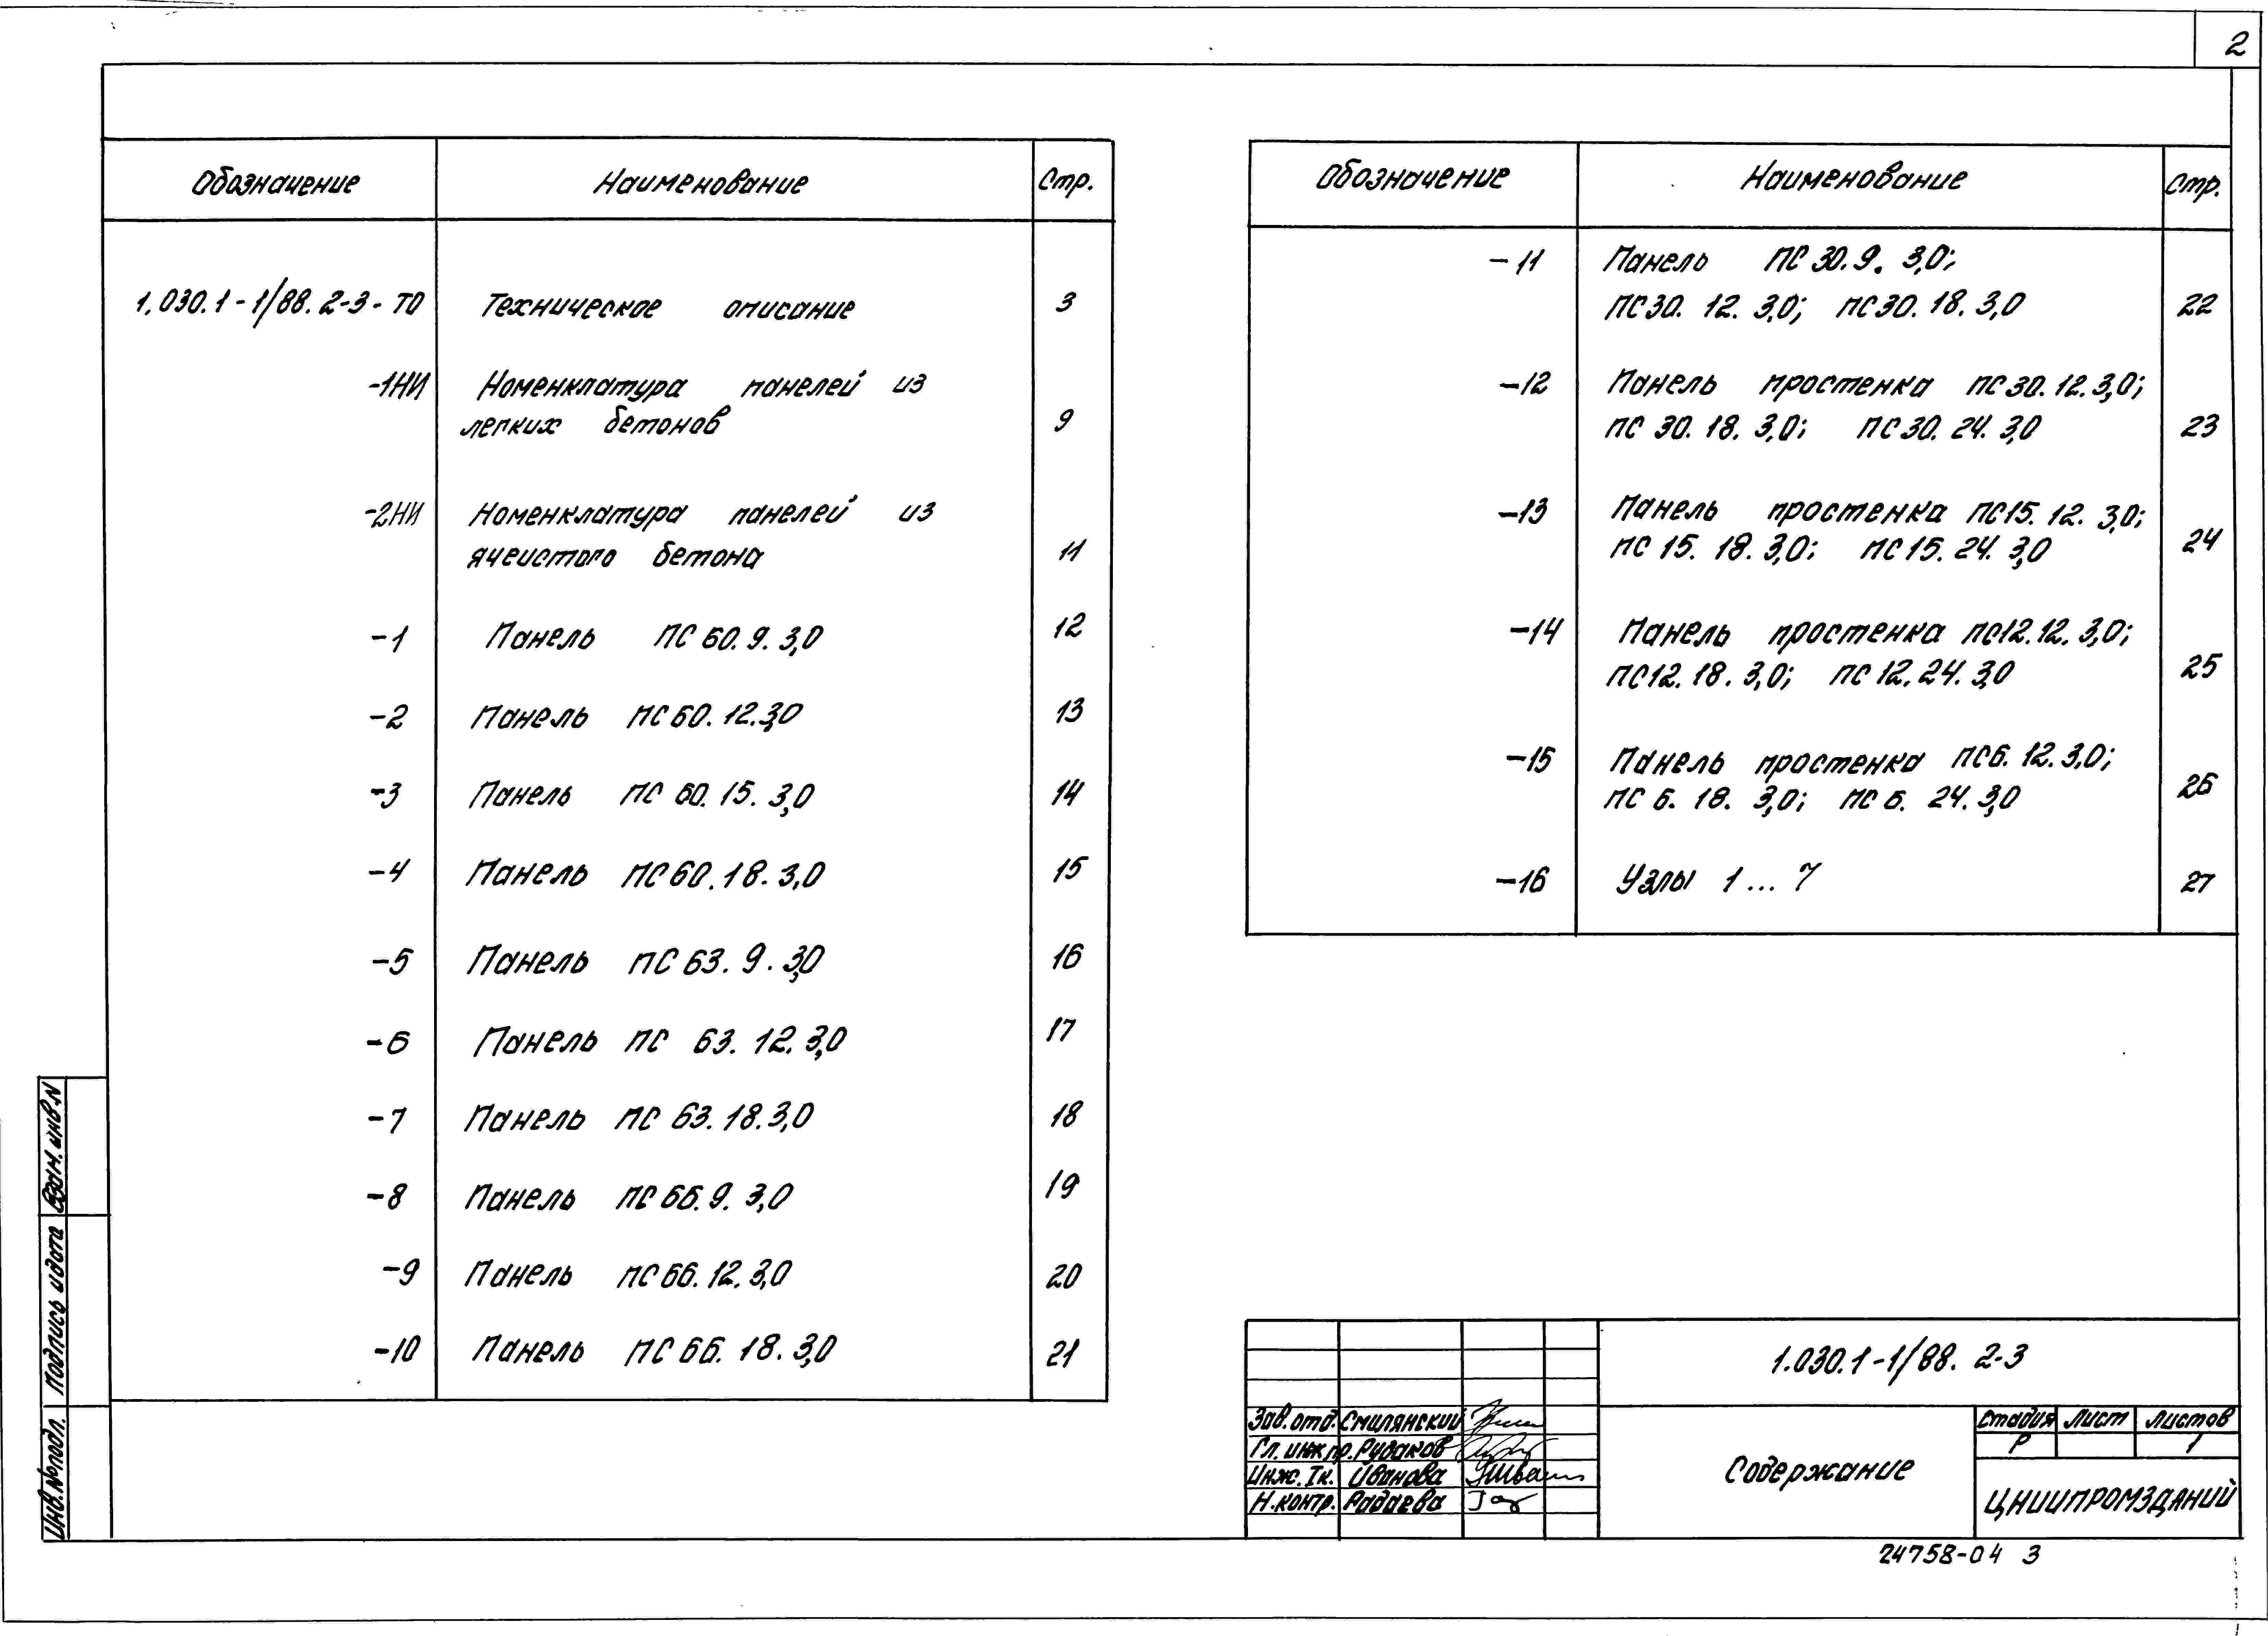 2
Обозначение Наименование Стр.
1.030.1-1/88.2-3-ТО Техническое описание 3
-1НИ Номенклатура панелей из
легких бетонов 9
-2НИ Номенклатура панелей из
ячеистого бетона 11
-1 Панель ПС 60.9.3,0 12
-2 Панель ПС 60.12.3,0 13
-3 Панель ПС 60.15.3,0 14
-4 Панель ПС 60.18.3,0 15
-5 Панель ПС 63.9.3,0 16
-6 Панель ПС 63.12.3,0 17
-7 Панель ПС 63.18.3,0 18
-8 Панель ПС 66.9.3,0 19
-9 Панель ПС 66.12.3,0 20
-10 Панель ПС 66.18.3,0 21
Обозначение Наименование Стр.
-11 Панель ПС 30.9.3,0;
ПС 30.12.3,0; ПС 30.18.3,0 22
-12 Панель простенка ПС 30.12.3,0;
ПС 30.18.3,0; ПС 30.24.3,0 23
-13 Панель простенка ПС 15.12.3,0;
ПС 15.18.3,0; ПС 15.24.3,0 24
-14 Панель простенка ПС 12.12.3,0;
ПС 12.18.3,0; ПС 12.24.3,0 25
-15 Панель простенка ПС 6.12.3,0;
ПС 6.18.3,0; ПС 6.24.3,0 26
-16 Узлы 1...7 27
Инв.№подл. Подпись и дата Взам.инв.N
1.030.1-1/88. 2-3
Зав.отд. Смилянский
Гл.инж.пр. Рудаков
Инж.Iк. Иванова
Н.контр. Радаева
Содержание
Стадия Лист Листов
Р 1
ЦНИИПРОМЗДАНИЙ
24758-04 3